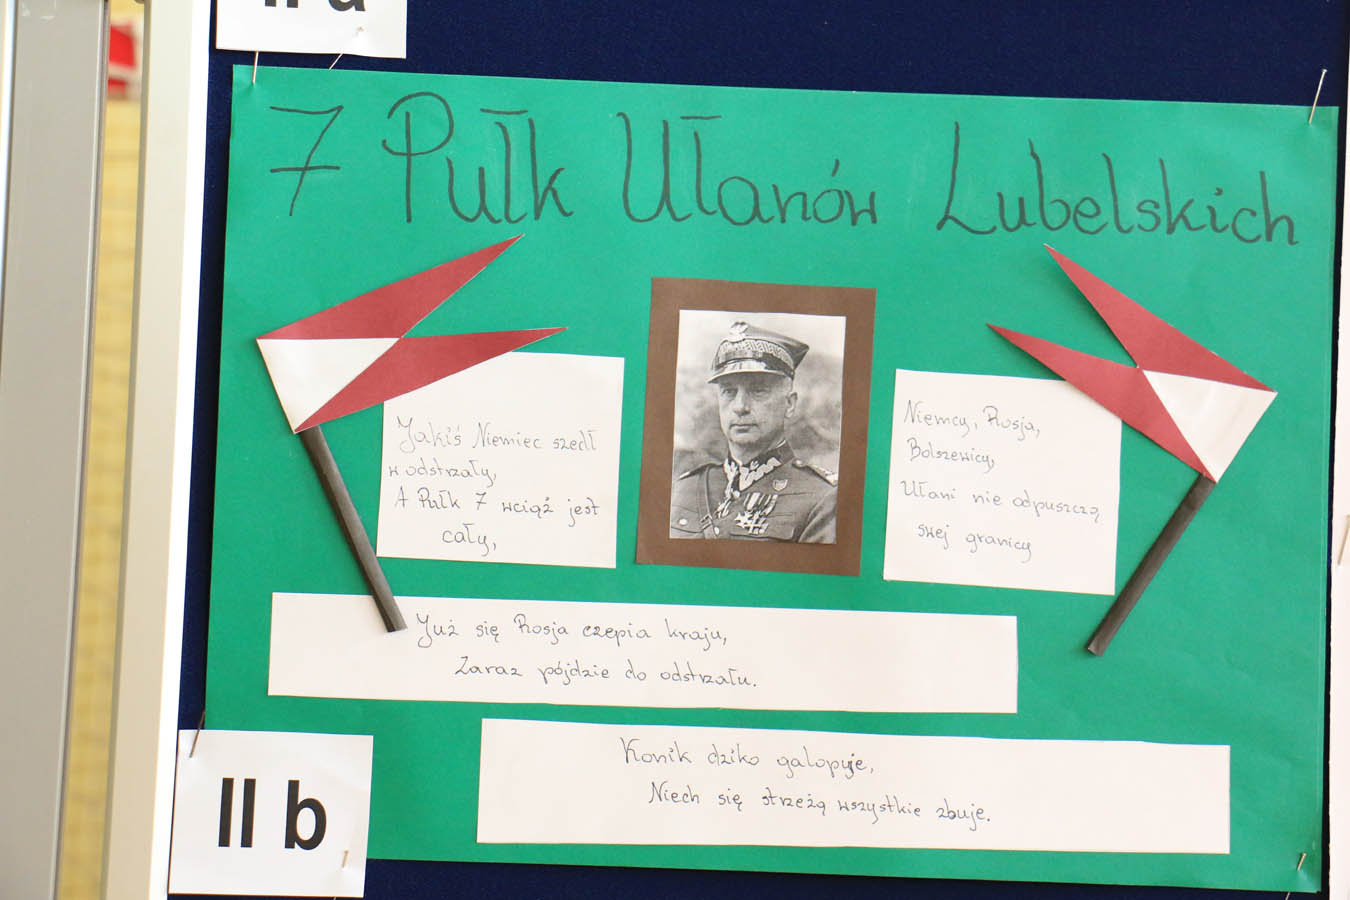 II a
7 Pułk Ułanów Lubelskich
Jakiś Niemiec szedł
w odstrzały,
A Pułk 7 wciąż jest
cały,
Niemcy, Rosja,
Bolszewicy,
Ułani nie odpuszczą
swej granicy
Już się Rosja czepia kraju,
Zaraz pójdzie do odstrzału.
Konik dziko galopuje,
Niech się strzeżą wszystkie zbuje.
II b